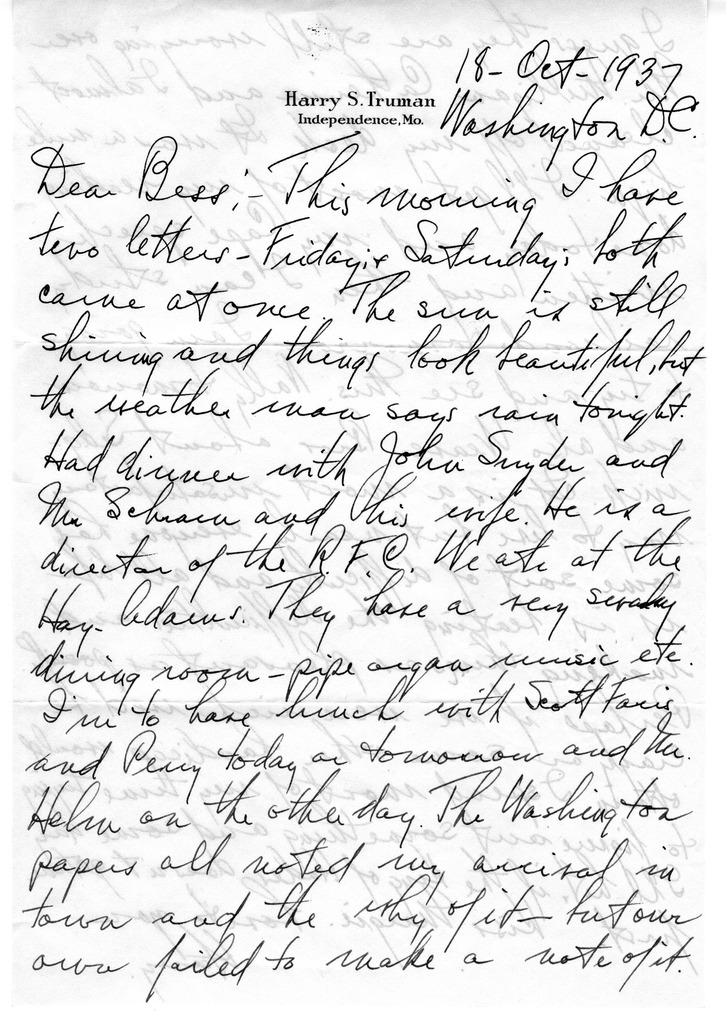 18- Oct- 1937
Harry S. Truman
Independence, Mo.
Washington D.C.
Dear Bess;- This morning I have
two letters - Friday; & Saturday; both
came at once. The sun is still
shining and things look beautiful, but
the weather man says rain tonight.
Had dinner with John Snyder and
Mr Schram and his wife. He is a
director of the R.F.C. We ate at the
Hay-Adams. They have a very swanky
dining room - pipe organ music etc.
I'm to have lunch with Scott Faris
and Perry today or tomorrow and Mr.
Helm on the other day. The Washington
papers all noted my arrival in
town and the why of it - but our
own failed to make a note of it.